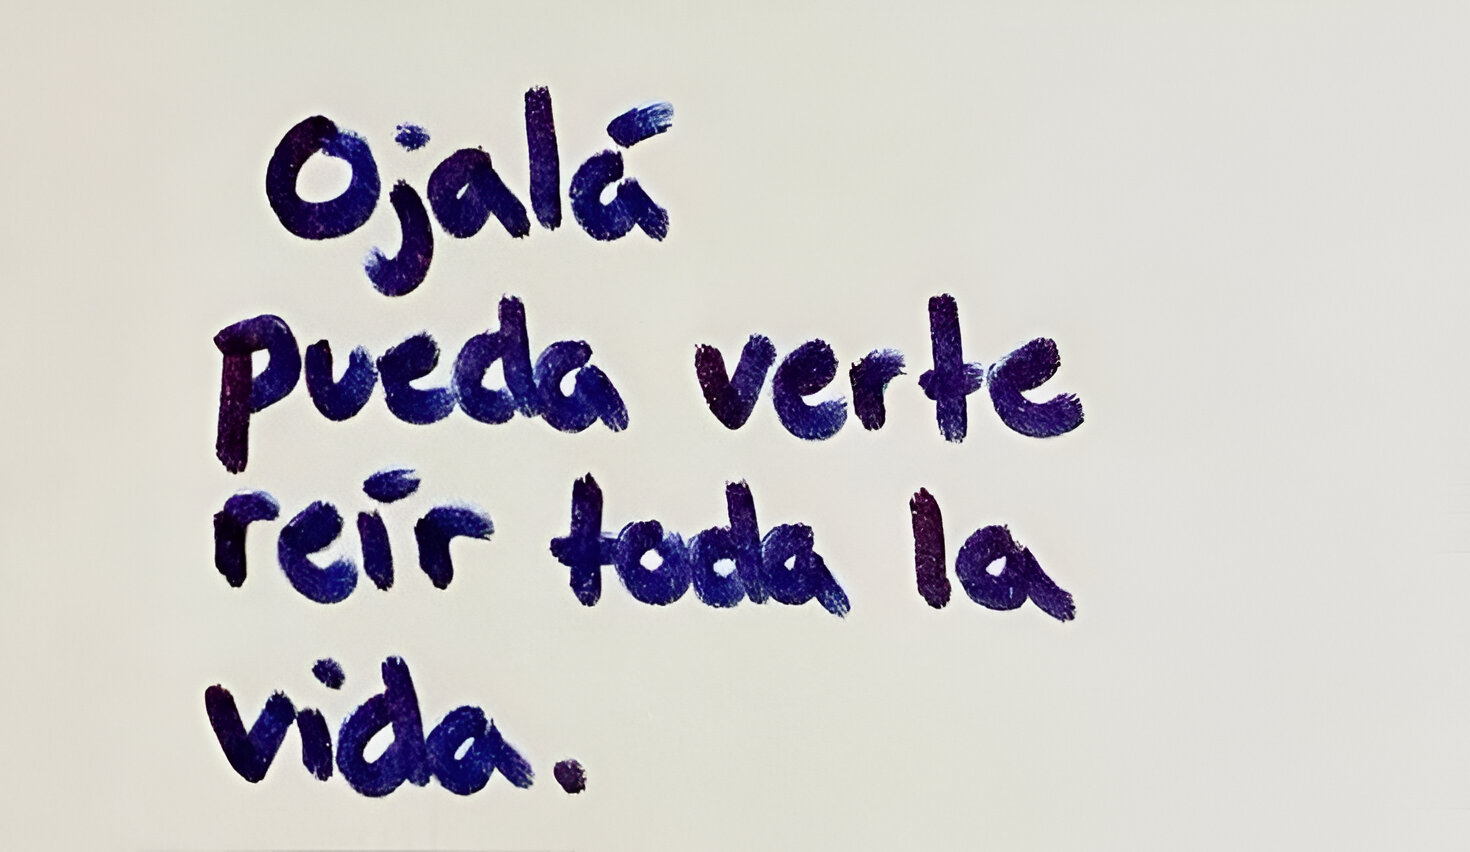 Ojalá
pueda verte
reír toda la
vida.